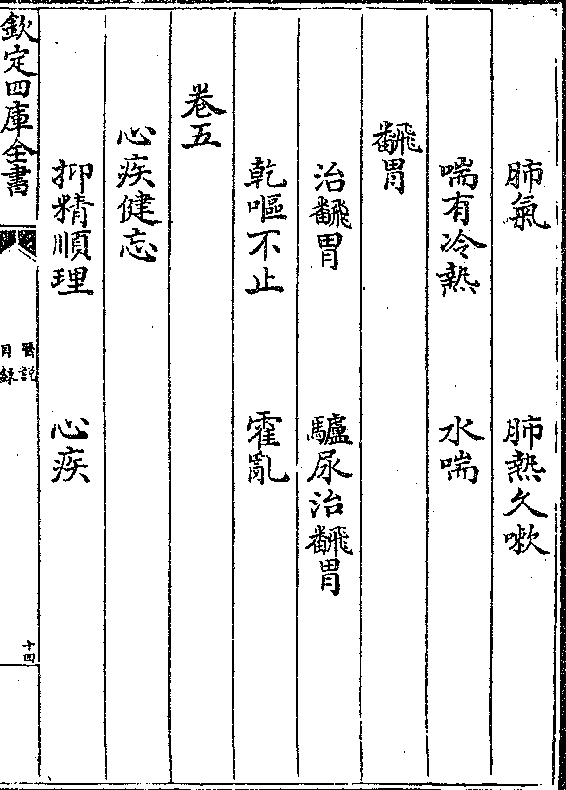 肺氣　肺熱久嗽
喘有冷熱　水喘
飜胃
治飜胃　驢尿治飜胃
乾嘔不止　霍亂
卷五
心疾健忘
抑精順理　心疾
欽定四庫全書
醫説
目錄
十四